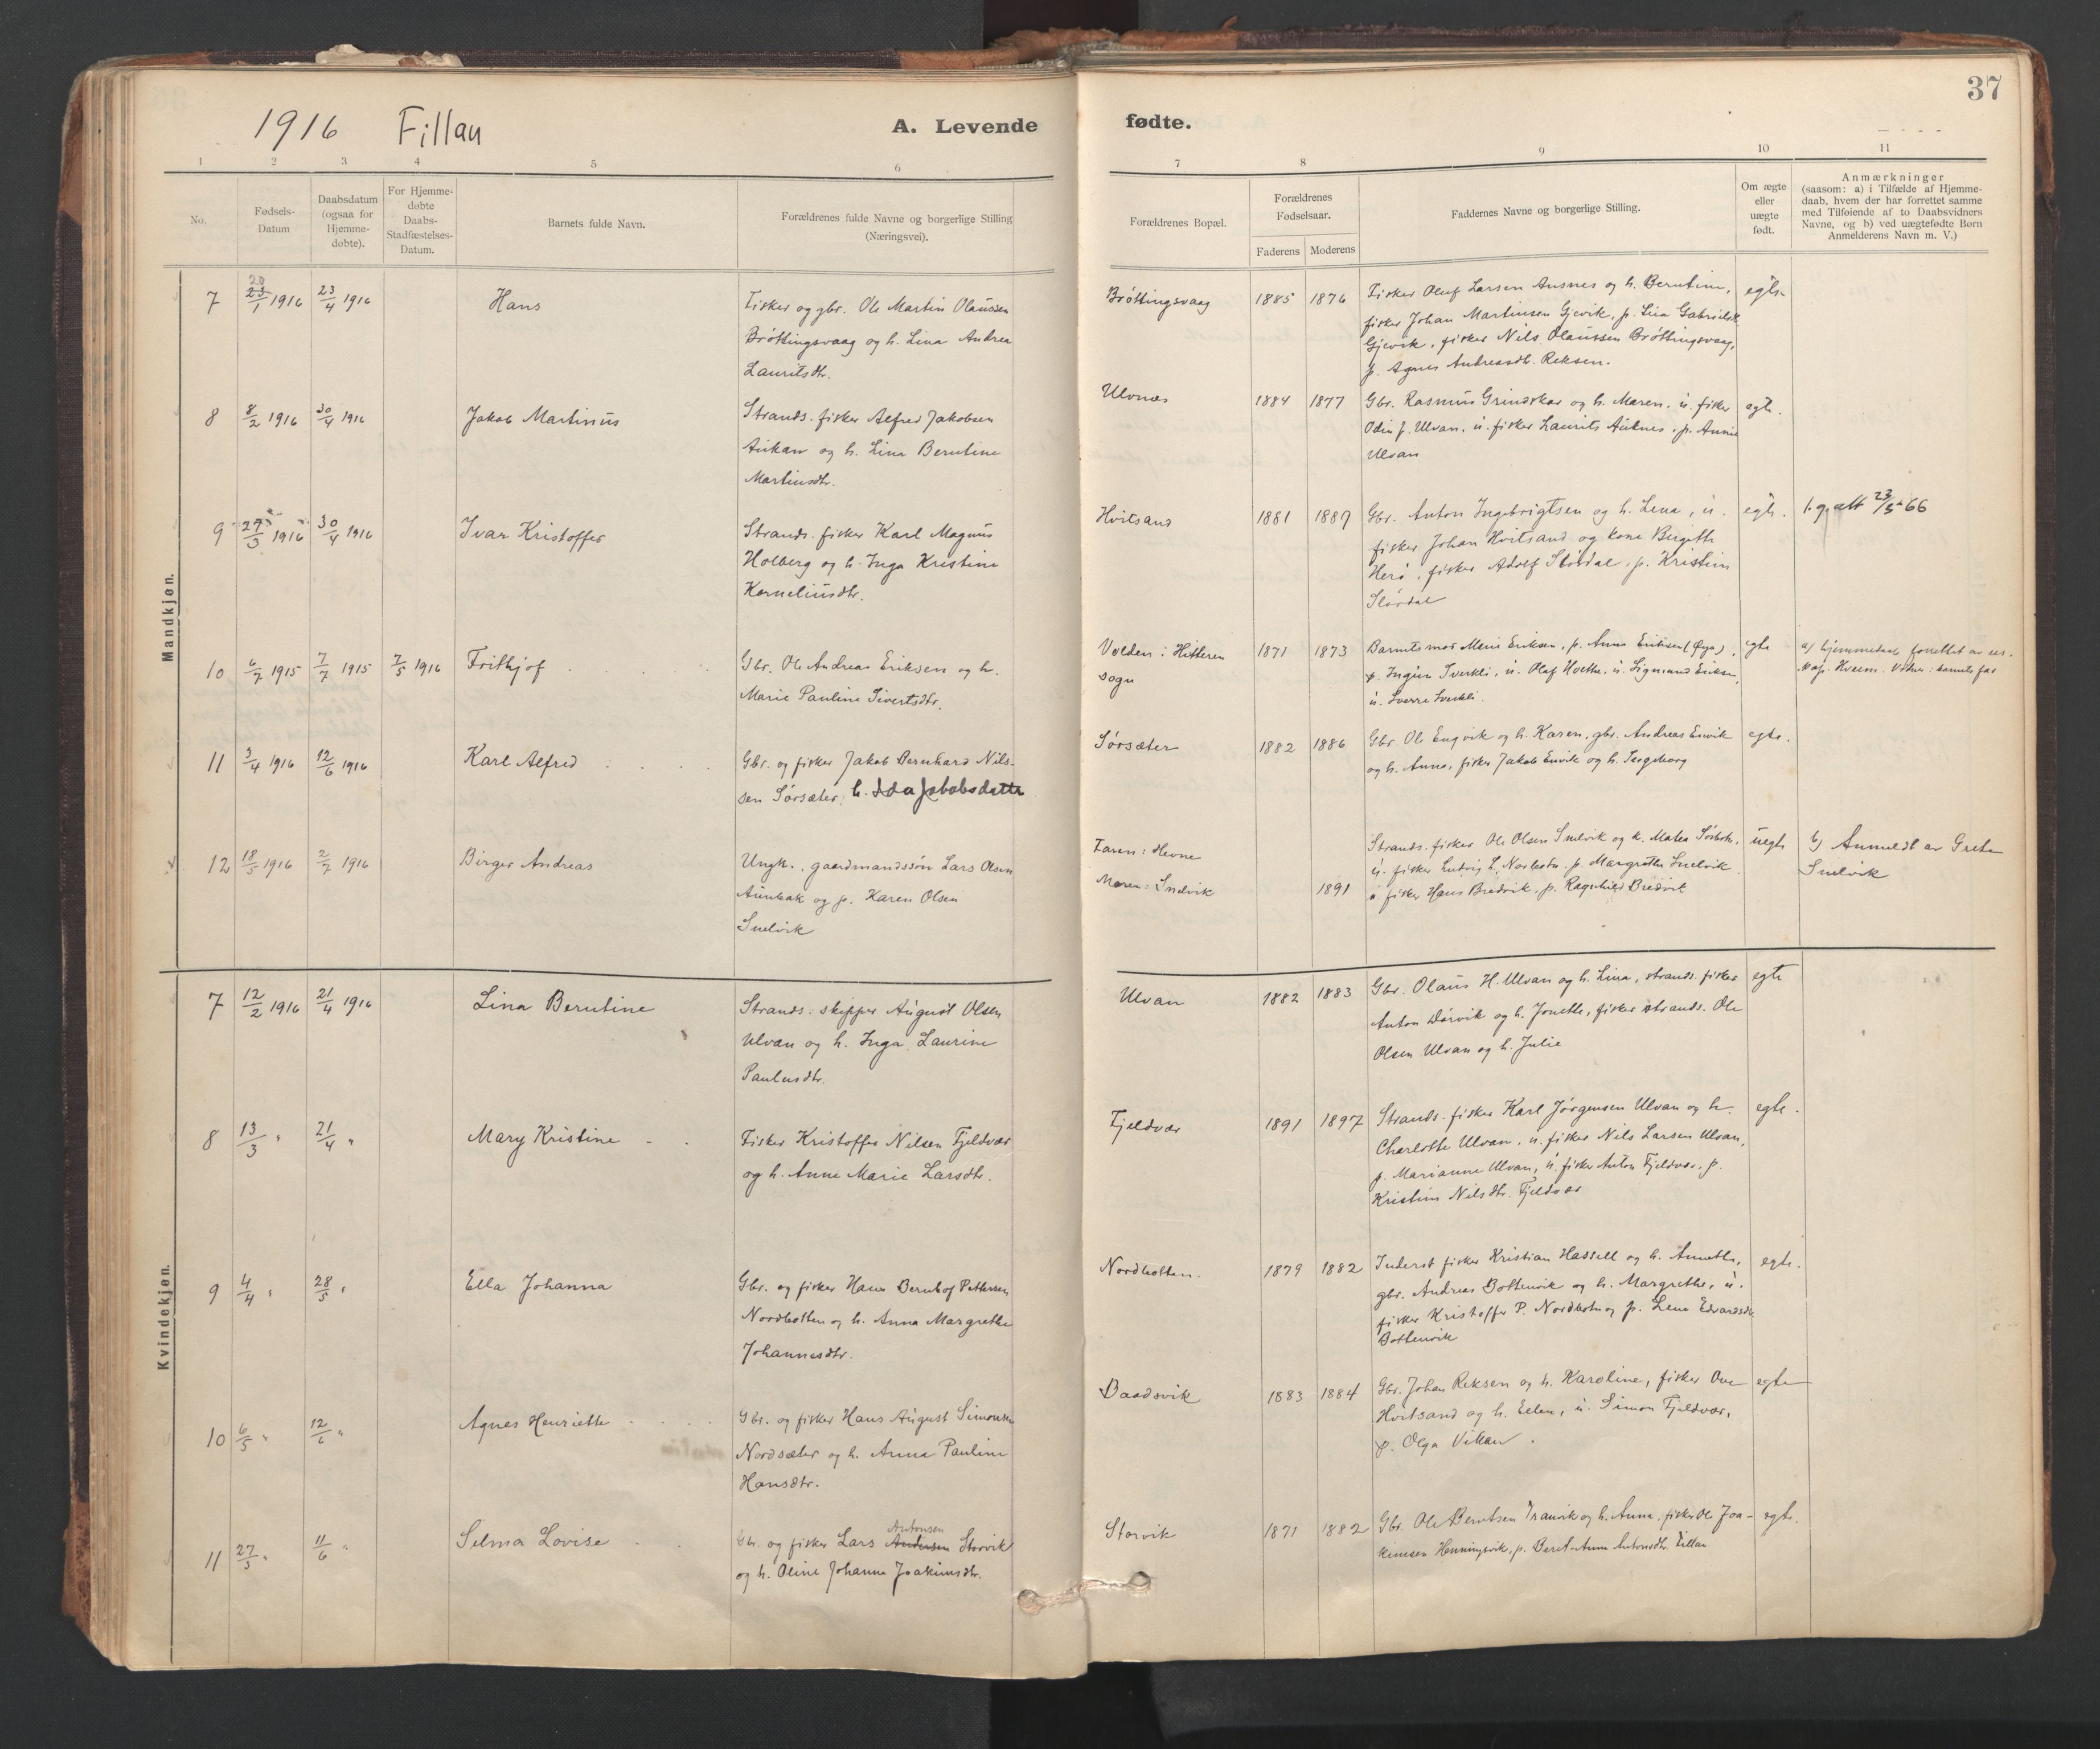 37
1916 Fillan
A. Levende fødte.
1 2 3 4 5 6 7 8 9 10 11
No.
Fødsels-
Datum
Daabsdatum
(ogsaa for
Hjemme-
døbte).
For Hjemme-
døbte
Daabs-
Stadfæstelses-
Datum.
Barnets fulde Navn.
Forældrenes fulde Navne og borgerlige Stilling
(Næringsvei).
Forældrenes Bopæl.
Forældrenes
Fødselsaar.
Faderens Moderens
Faddernes Navne og borgerlige Stilling.
Om ægte
eller
uægte
født.
Anmærkninger
(saasom: a) i Tilfælde af Hjemme-
daab, hvem der har forrettet samme
med Tilføiende af to Daabsvidners
Navne, og b) ved uægtefødte Børn
Anmelderens Navn m. V.)
Mandkjøn.
7 20 23/1 1916 23/4 1916 Hans
Fisker og gbr. Ole Martin Olaussen
Brøttingsvaag og h. Lina Andrea
Lauritsdtr.
Brøttingsvaag 1885 1876
Fisker Oluf Larsen Ausnes og h. Berntine,
fisker Johan Martinsen Gjevik, p. Lina Gabrielsdtr.
Gjevik, fisker Nils Olaussen Brøttingsvaag,
p. Agnes Andreasdtr. Reksen.
egte
8 8/2 1916 30/4 1916 Jakob Martinus
Strands. fisker Alfred Jakobsen
Aukan og h. Lina Berntine
Martinsdtr.
Ulvnes 1884 1877
Gbr. Rasmus Grindskar og h. Maren, u. fisker
Odin J. Ulvan, u. fisker Laurits Auknes, p. Annie
Ulvan
egte.
9 27/3 1916 30/4 1916 Ivar Kristoffer
Strands. fisker Karl Magnus
Holberg og h. Inga Kristine
Korneliusdtr.
Hvitsand 1881 1889
Gbr. Anton Ingebrigtsen og h. Lena, u.
fisker Johan Hvitsand og kone Birgitte
Herø, fisker Adolf Slørdal, p. Kristine
Slørdal
egte. 1. g. att 23/5-66
10 6/7 1915 7/7 1915 7/5 1916 Frithjof
Gbr. Ole Andreas Eriksen og h.
Marie Pauline Sivertsdtr.
Volden i Hitteren
sogn
1871 1873
Barnets mor Marie Eriksen, p. Anna Eriksen (Øya),
p. Ingun Sverkli, u. Olaf Hvethe, u. Sigmund Eriksen,
u. Sverre Sverkli.
egte a) hjemmedaab forrettet av
Hveem. Vidner: barnets far
11 3/4 1916 12/6 1916 Karl Alfred
Gbr. og fisker Jakob Bernhard Nils-
sen Sørsæter, h. Ida Jakobsdatter
Sørsæter 1882 1886
Gbr. Ole Engvik og h. Karen, gbr. Andreas Envik
og h. Anna, fisker Jakob Envik og h. Ingeborg
egte.
12 18/5 1916 2/7 1916 Birger Andreas
Ungk., gaardmandssøn Lars Olsen
Aunbak og p. Karen Olsen
Snelvik
Faren: Hevne
Moren: Snelvik
1891
Strands. fisker Ole Olsen Snelvik og k. Matea Sørbotn,
u. fisker Ludvig L. Norbotn, p. Margrethe Snelvik
u fisker Hans Bredvik, p. Ragnhild Bredvik
uegte b) Anmeldt av Grete
Snelvik
Kvindekjøn.
7 12/2 1916 21/4 1916 Lina Berntine
Strands: skipper August Olsen
Ulvan og h. Inga Laurine
Paulusdtr.
Ulvan 1882 1883
Gbr. Olaus H. Ulvan og h. Lina, strands. fisker
Anton Dørvik og h. Jonette, fisker strands. Ole
Olsen Ulvan og h. Julie
egte
8 13/3 " 21/4 " Mary Kristine
Fisker Kristoffer Nilsen Fjeldvær
og h. Anne Marie Larsdtr.
Fjeldvær 1891 1897
Strands. fisker Karl Jørgensen Ulvan og h.
Charlotte Ulvan, u. fisker Nils Larsen Ulvan,
p. Marianne Ulvan, u. fisker Anton Fjeldvær, p.
Kristine Nilsdtr. Fjeldvær
egte.
9 4/4 " 28/5 " Ella Johanna
Gbr. og fisker Hans Bernhof Pettersen
Nordbotten og h. Anna Margrethe
Johannesdtr.
Nordbotten. 1879 1882
Inderst fisker Kristian Hassell og h. Annette,
gbr. Andreas Bottenvik og h. Margrethe, u.
fisker Kristoffer P. Nordbotn og p. Lena Edvardsdtr.
Bottenvik
egte.
10 6/5 " 12/6 " Agnes Henriette
Gbr. og fisker Hans August Simonsen
Nordsæter og h. Anna Pauline
Hansdtr.
Baadsvik 1883 1884
Gbr. Johan Reksen og h. Karoline, fisker Ove
Hvitsand og h. Ellen, u. Simon Fjeldvær,
p. Olga Vikan.
egte
11 27/3 " 11/6 " Selma Lovise
Gbr. og fisker Lars Andersen Antonsen Storvik
og h. Oline Johanna Joakimsdtr.
Storvik 1871 1882
Gbr. Ole Berntsen Tranvik og h. Anna, fisker Ole Joa-
kimsen Henningsvik, p. Beret-Anna Antonsdtr. Fillan
egte.